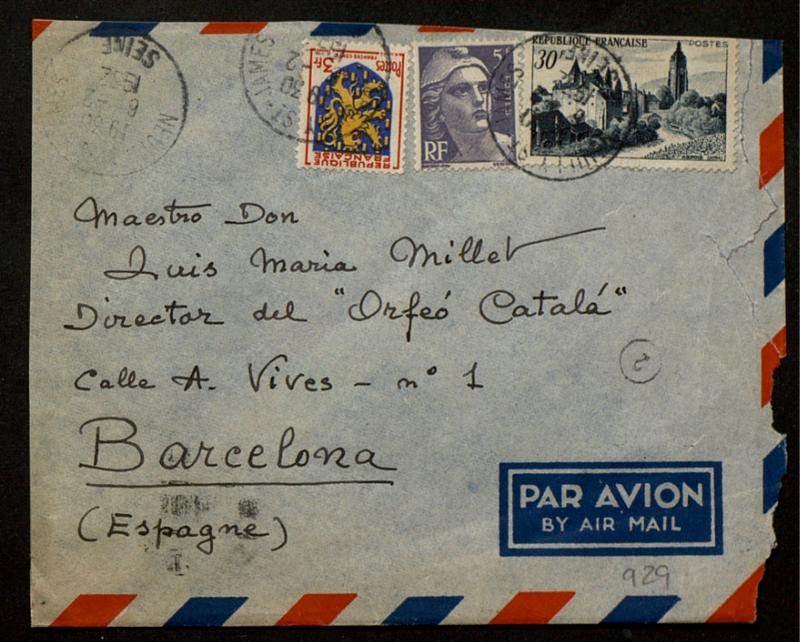 SEINE
ST-JAMES
Postes
3F
REPUBLIQUE
FRANÇAISE
5F
POSTES
RF
REPUBLIQUE FRANÇAISE
POSTES
30F
Maestro Don
Luis Maria Millet
Director del "Orfeó Catalá"
Calle A. Vives - nº 1
Barcelona
(Espagne)
2
PAR AVION
BY AIR MAIL
929